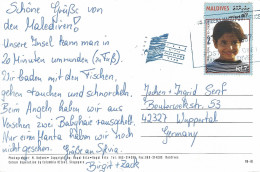 Schöne Grüße von
den Malediven!
Unsere Insel kann man in
20 Minuten umrunden (zu Fuß).
Wir baden mit den Fischen,
gehen tauchen und schnorcheln.
Beim Angeln haben wir aus
Versehen zwei Babyhaie rausgeholt.
Nur eine Manta haben wir noch
nicht gesehen.
Grüße an Sylvia.
Birgit +
MALDIVES
Jochen + Ingrid Senf
42327 Wuppertal
Germany